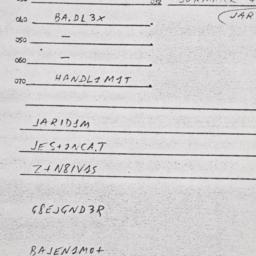 040 BA.DL3X.
050 —.
060 —.
070 HANDL1M1T.
(JAR
JARID1M
JES+2NCA.T
Z+N8IV1S
G8EJGND3R
BAJEN1MO+